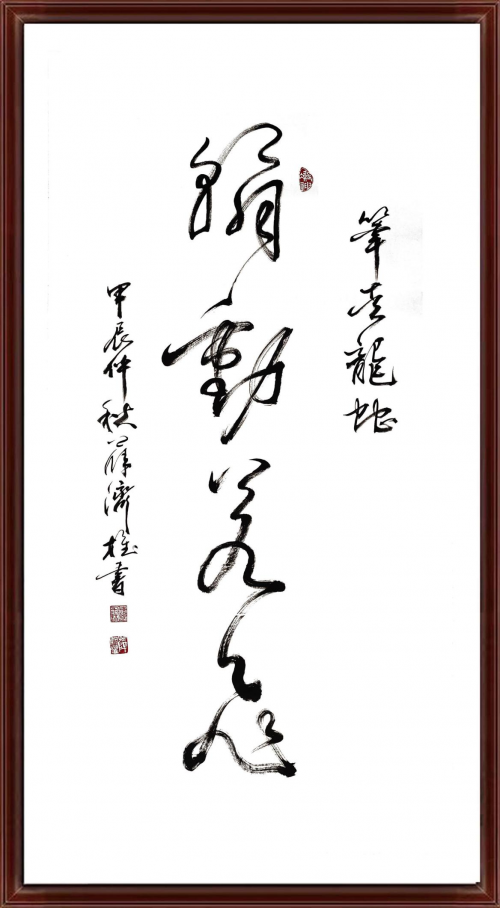 筆走龍蛇
翰動若飛
甲辰仲秋薛濟書